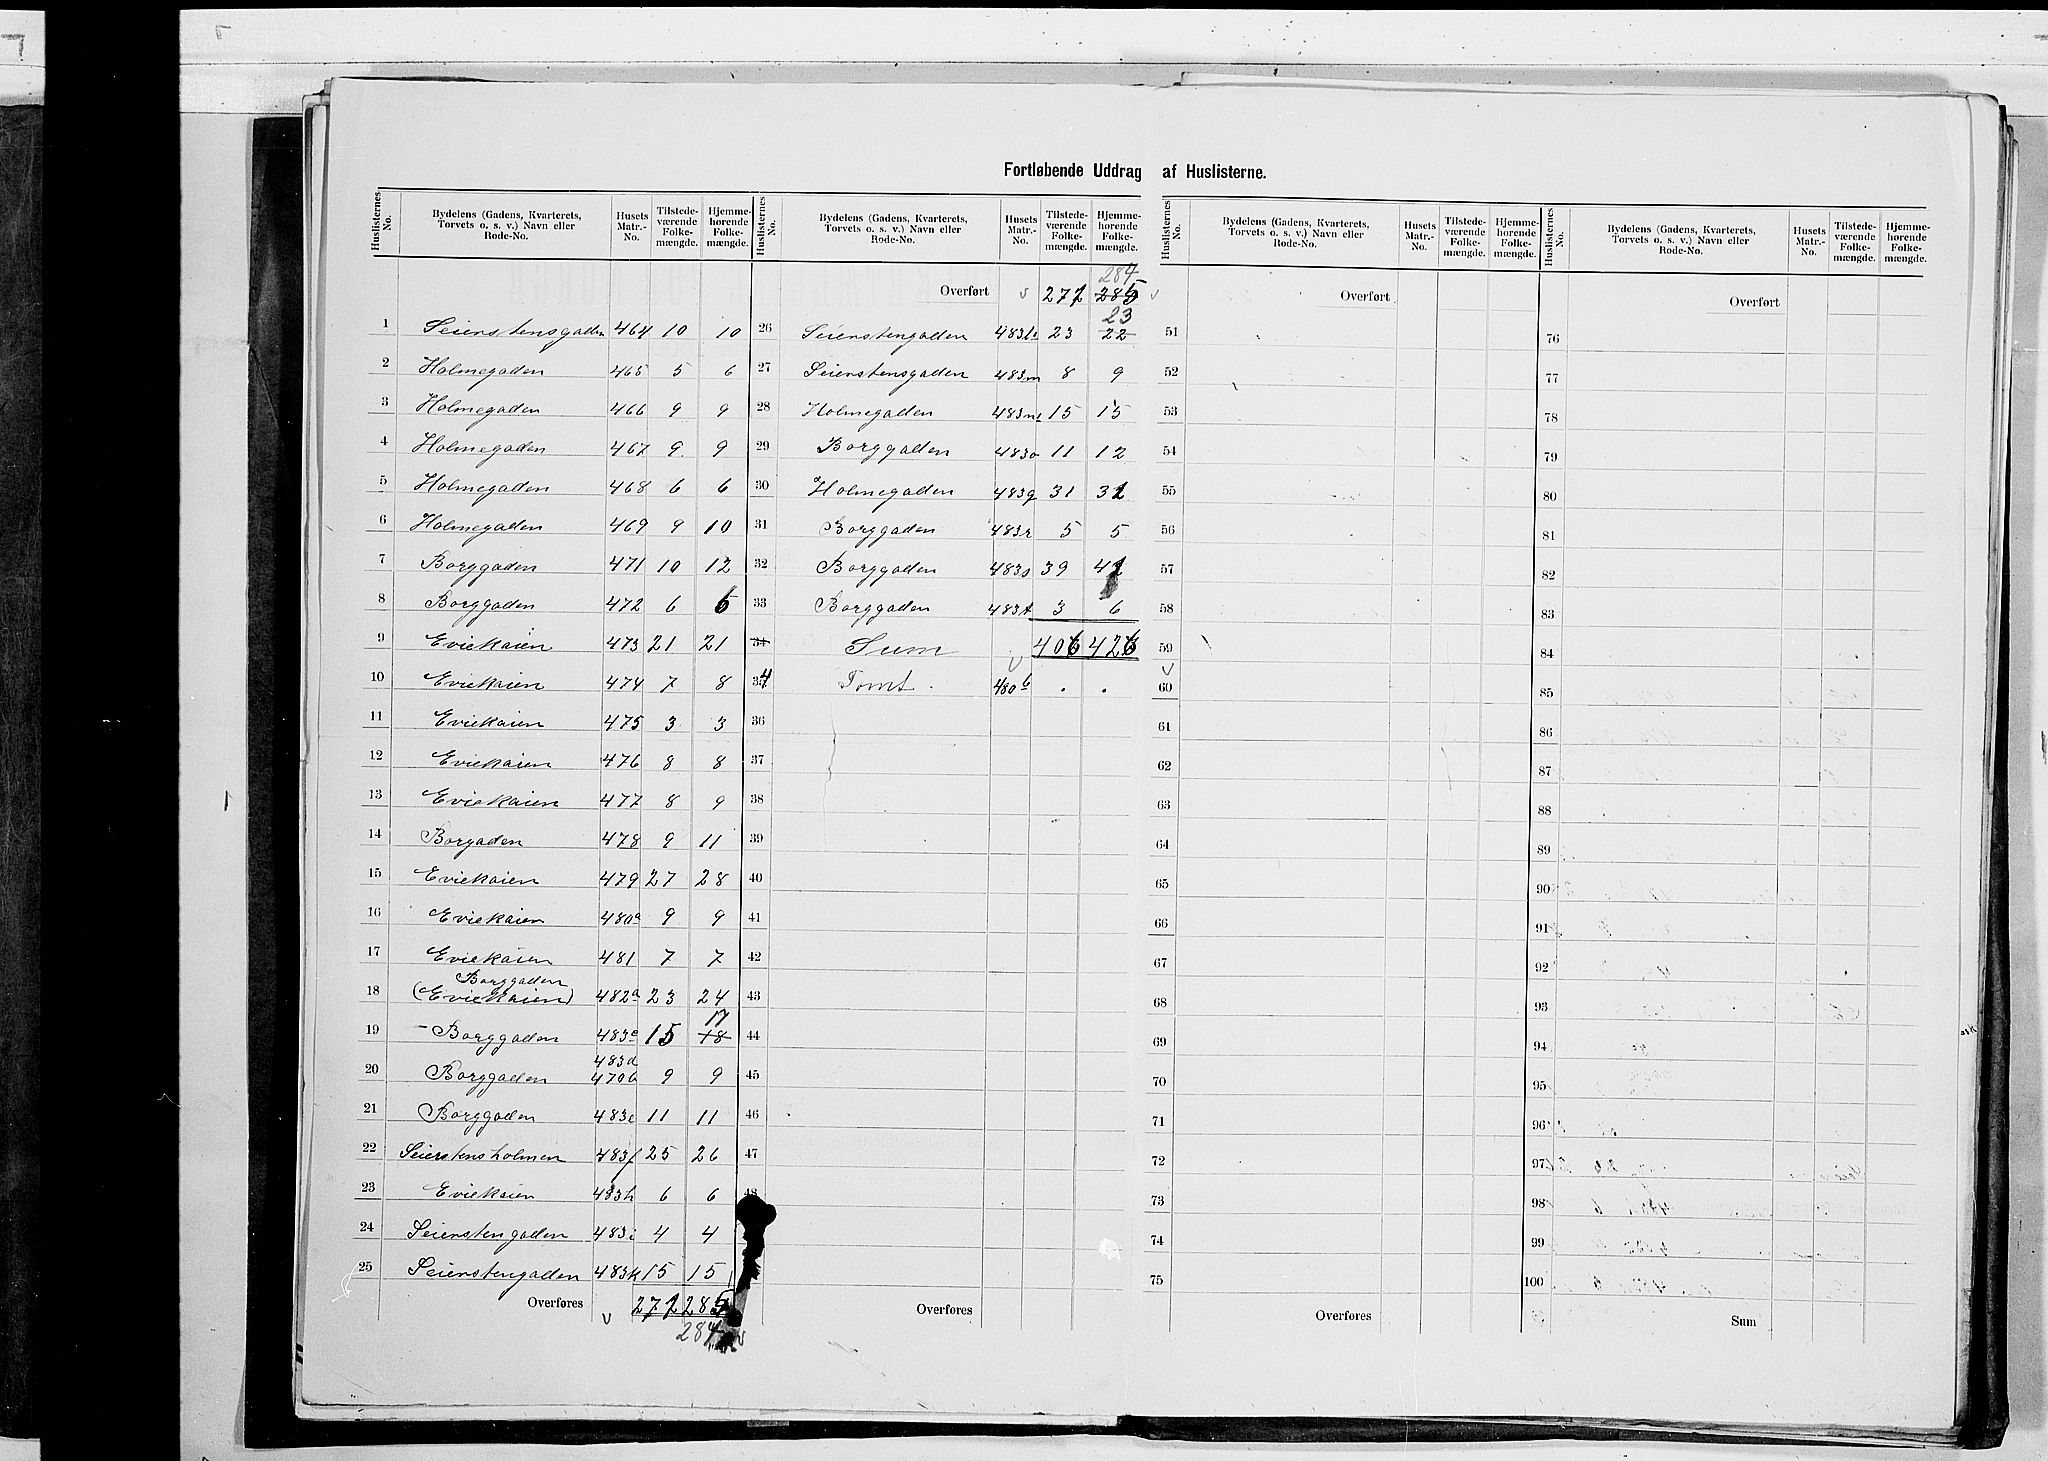 Fortløbende Uddrag af Huslisterne.
Huslisternes No. | Bydelens (Gadens, Kvarterets, Torvets o. s. v.) Navn eller Rode-No. | Husets Matr.-No. | Tilstede-værende Folke-mængde. | Hjemme-hørende Folke-mængde.
1 Seierstensgaden 464 10 10
2 Holmegaden 465 5 6
3 Holmegaden 466 9 9
4 Holmegaden 467 9 9
5 Holmegaden 468 6 6
6 Holmegaden 469 9 10
7 Borggaden 471 10 12
8 Borggaden 472 6 6
9 Eviekaien 473 21 21
10 Eviekaien 474 7 8
11 Eviekaien 475 3 3
12 Eviekaien 476 8 8
13 Eviekaien 477 8 9
14 Borgaden 478 9 11
15 Eviekaien 479 27 28
16 Eviekaien 480a 9 9
17 Eviekaien 481 7 7
Borggaden
18 (Eviekaien) 482a 23 24
17
19 Borggaden 483c 15 18
483d
20 Borggaden 470b 9 9
21 Borggaden 483e 11 11
22 Seierstensholmen 483f 25 26
23 Eviekaien 483h 6 6
24 Seierstengaden 483i 4 4
25 Seierstengaden 483k 15 15
Overføres 272 285
284
Huslisternes No. | Bydelens (Gadens, Kvarterets, Torvets o. s. v.) Navn eller Rode-No. | Husets Matr.-No. | Tilstede-værende Folke-mængde. | Hjemme-hørende Folke-mængde.
284
Overført 272 285
23
26 Seierstengaden 483l 23 22
27 Seierstensgaden 483m 8 9
28 Holmegaden 483n 15 15
29 Borggaden 483o 11 12
30 Holmegaden 483q 31 31
31 Borggaden 483r 5 5
32 Borggaden 483s 39 41
33 Borggaden 483t 3 6
34 Sum 406 426
35 4 Tomt. 480b . .
36
37
38
39
40
41
42
43
44
45
46
47
48
Overføres
Huslisternes No. | Bydelens (Gadens, Kvarterets, Torvets o. s. v.) Navn eller Rode-No. | Husets Matr.-No. | Tilstede-værende Folke-mængde. | Hjemme-hørende Folke-mængde.
Overført
51
52
53
54
55
56
57
58
59
60
61
62
63
64
65
66
67
68
69
70
71
72
73
74
75
Overføres
Huslisternes No. | Bydelens (Gadens, Kvarterets, Torvets o. s. v.) Navn eller Rode-No. | Husets Matr.-No. | Tilstede-værende Folke-mængde. | Hjemme-hørende Folke-mængde.
Overført
76
77
78
79
80
81
82
83
84
85
86
87
88
89
90
91
92
93
94
95
96
97
98
99
100
Sum